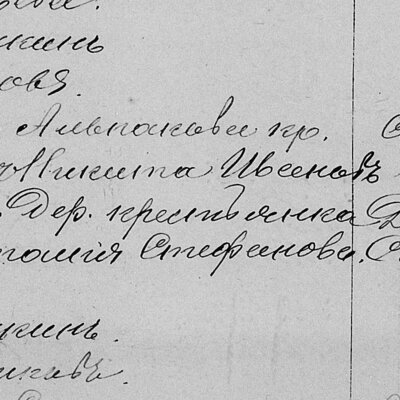 кинъ
овъ.
Алпакова кр.
Никита Ивановъ
Дер. крестьянка
талія Стефанова.
кинъ.
иковъ.